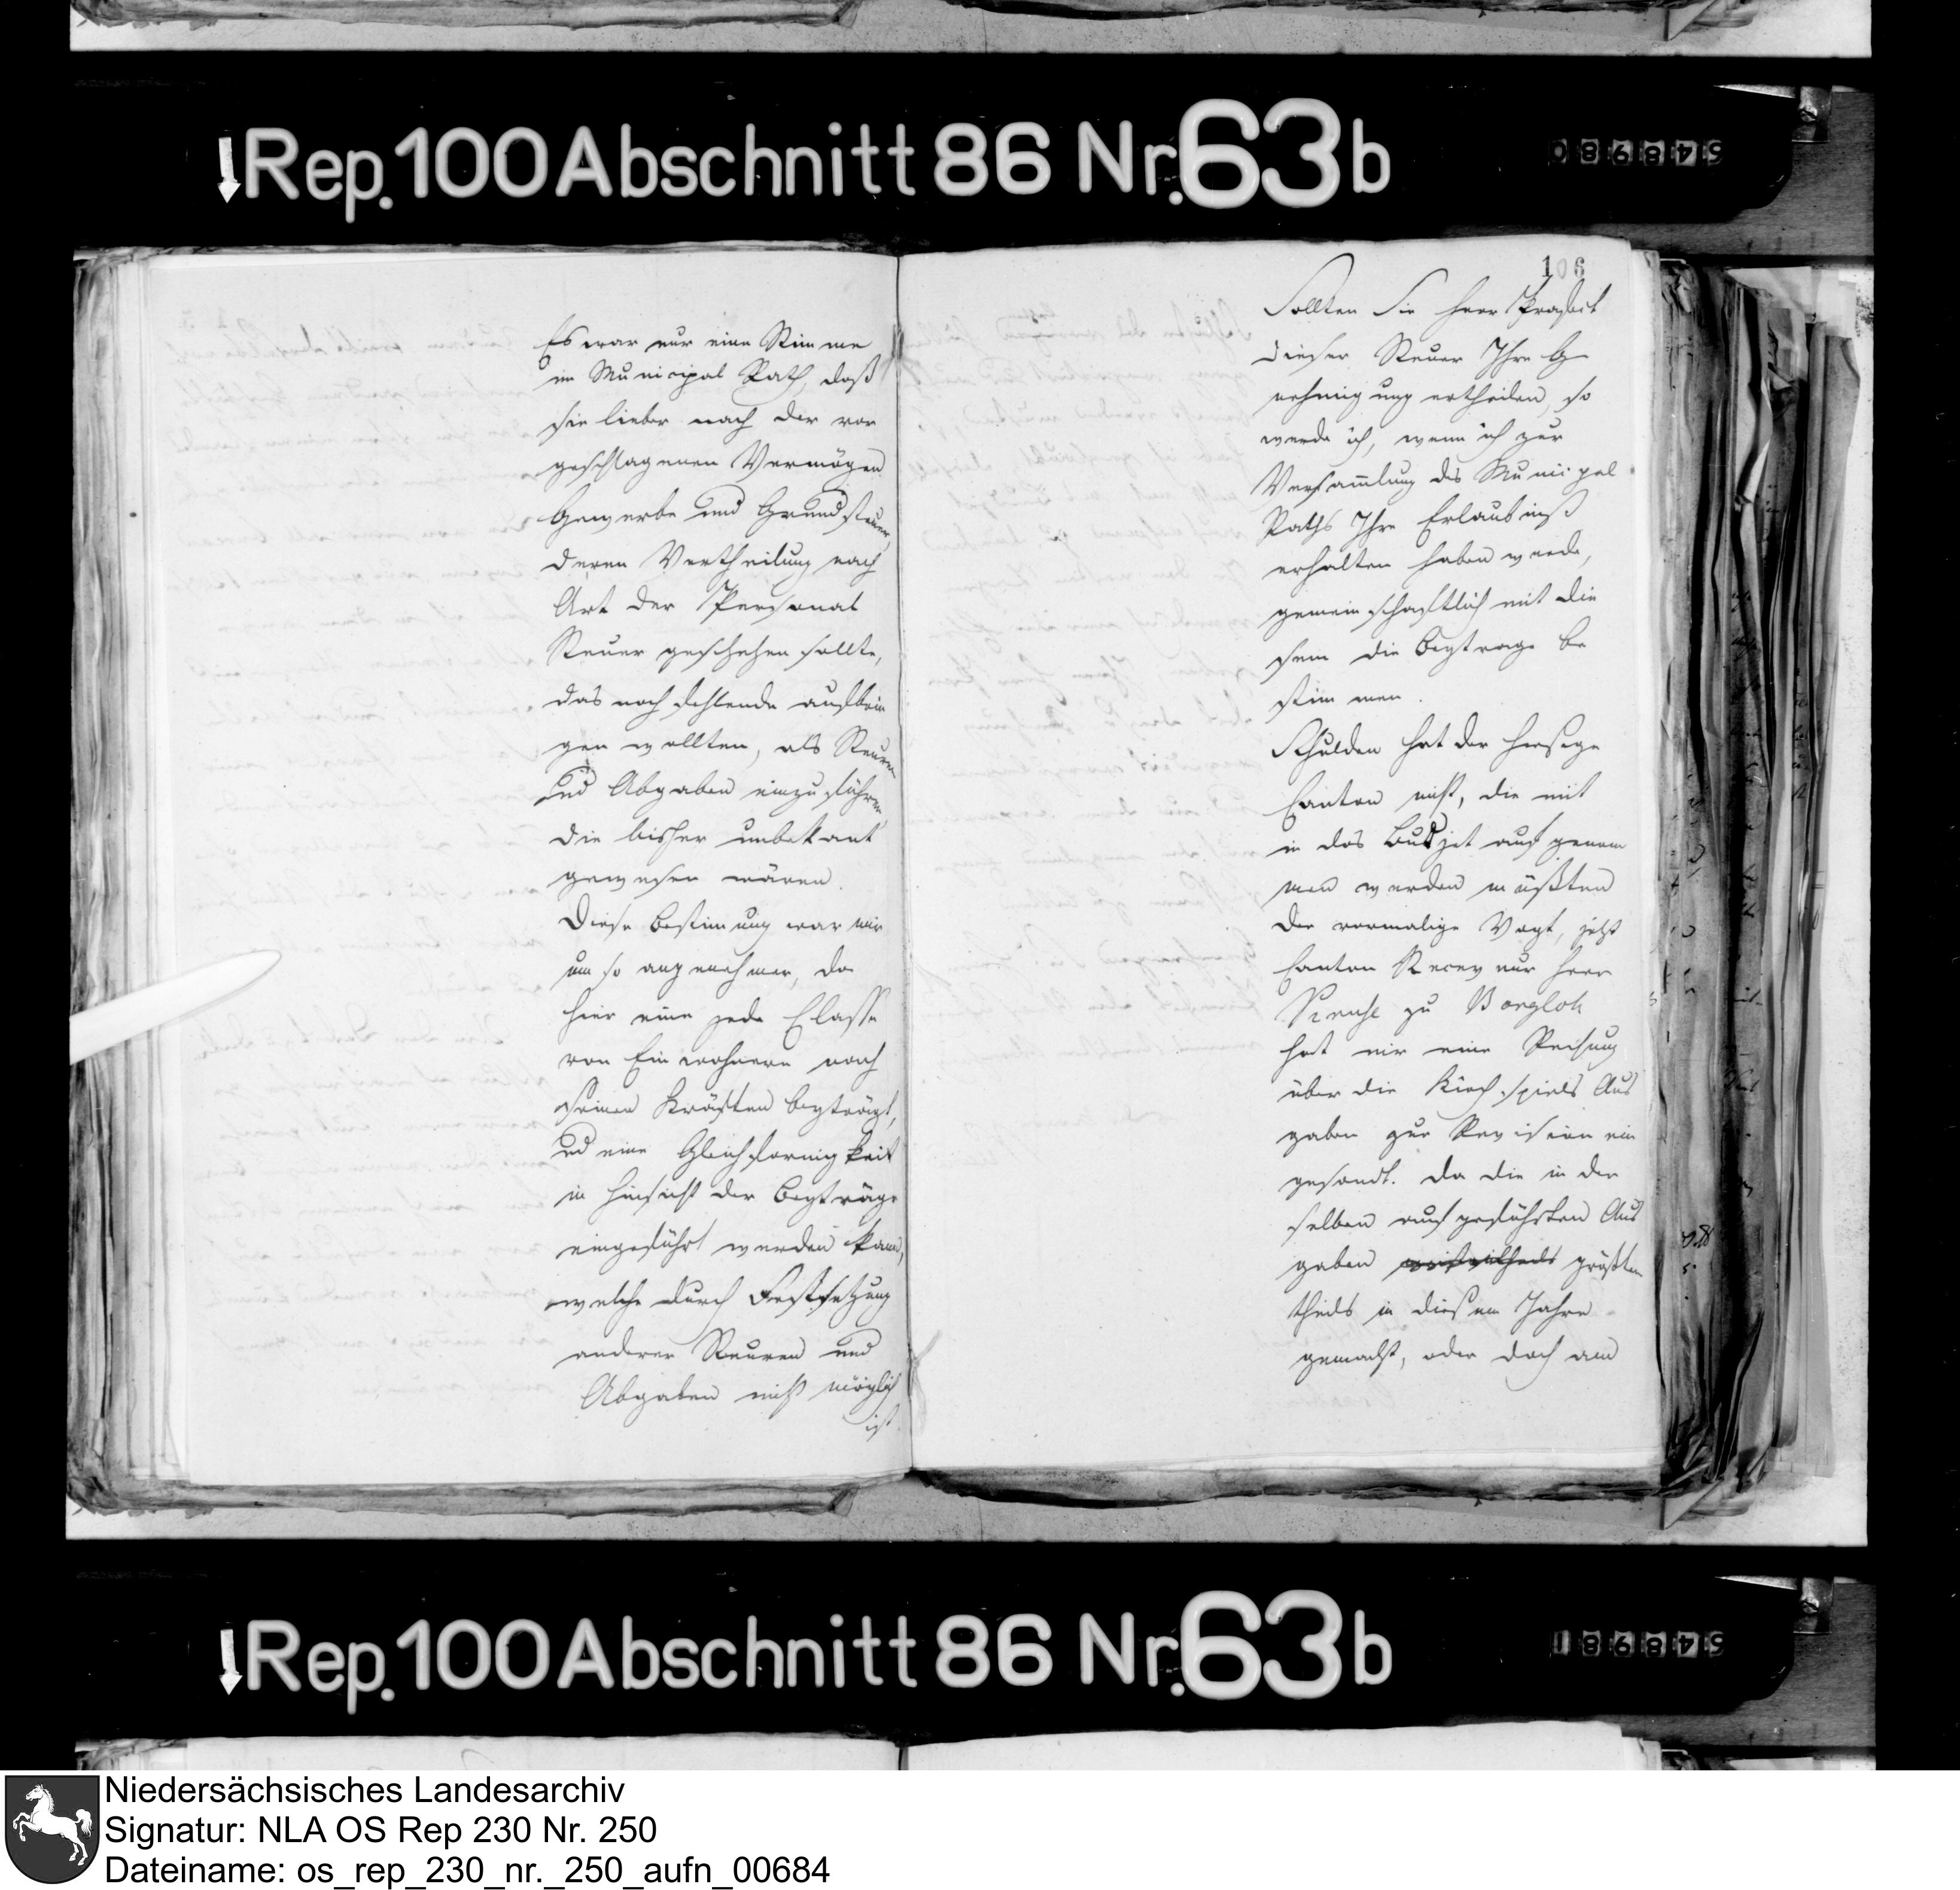 Rep. 100 Abschnitt 86 Nr. 63 b
548980
Es war nur eine Stimme
im Municipal Rath, daß
sie lieber nach der vor
geschlagenen Vermögen
Gewerbe und Grundsteuer,
deren Vertheilung nach
Art der Personal
Steuer geschehen sollte,
das noch fehlende aufbrin
gen wollten, als Steuren
und Abgaben einzuführen
die bisher unbekant
gewesen wären.
Diese Bestimung war mir
um so angenehmer, da
hier eine jede Classe
von Einwohnern nach
seinen Kräften beyträgt,
und eine Gleichformigkeit
in Hinsicht der Beyträge
eingeführt werden kann,
welche durch Festsetzung
anderer Steuren und
Abgaben nicht möglich
ist.
106
Sollten Sie Herr Praefect
dieser Steuer Ihre Ge
nehmigung ertheilen, so
werde ich, wenn ich zur
Versammlung des Municipal
Raths Ihre Erlaubniß
erhalten haben werde,
gemeinschaftlich mit die
sem die Beytrage be
stimmen.
Schulden hat der hiesige
Canton nicht, die mit
in das Budjet aufgenom
men werden müßten
Der vormalige Vogt, jetzt
Canton Receveur Herr
zu Borgloh
hat mir eine Rechnung
über die Kirchspiels Aus
gaben zur Revision ein
gesandt. Da die in der
selben aufgeführten Aus
gaben größten
theils in diesem Jahre
gemacht, oder doch am
Rep. 100 Abschnitt 86 Nr. 63 b
548981
Niedersächsisches Landesarchiv
Signatur: NLA OS Rep 230 Nr. 250
Dateiname: os_rep_230_nr._250_aufn_00684